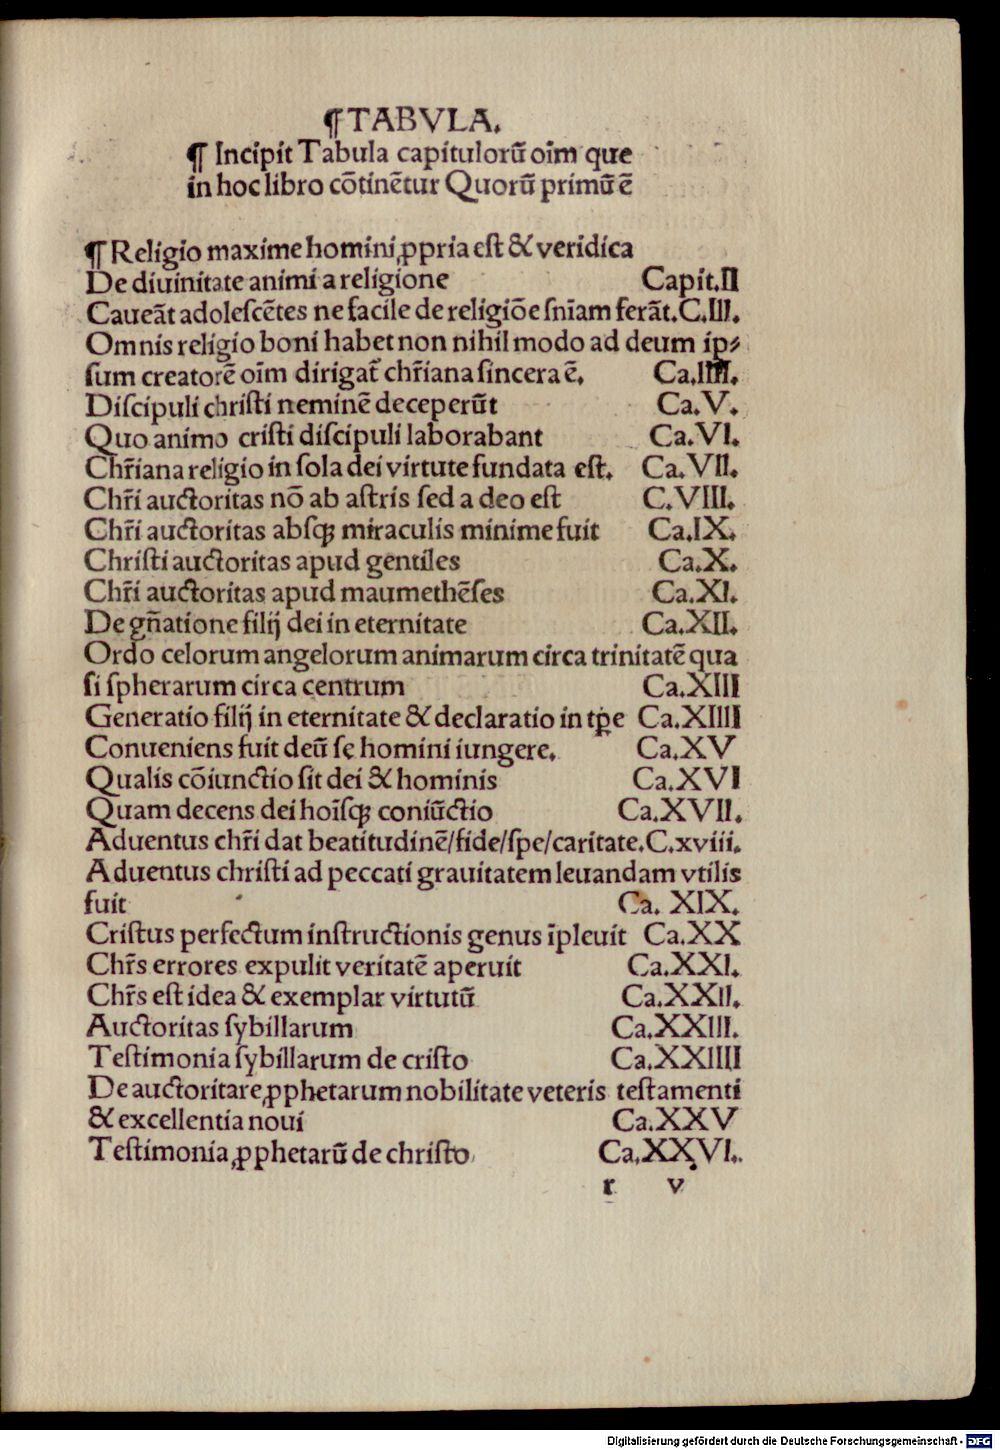 ¶TABVLA.
¶ Incipit Tabula capitulorū oīm que
in hoc libro cōtinētur Quorū primū ē
¶ Religio maxime homini ꝓpria eſt & veridica
De diuinitate animi a religione Capit.II
Caueāt adoleſcētes ne facile de religiōe ſnīam ferāt.C.III.
Omnis religio boni habet non nihil modo ad deum ip⸗
ſum creatorē oīm dirigat᷑ chr̄iana ſincera ē. Ca.IIII.
Diſcipuli chriſti neminē deceperūt Ca.V.
Quo animo criſti diſcipuli laborabant Ca.VI.
Chr̄iana religio in ſola dei virtute fundata eſt. Ca.VII.
Chr̄i auctoritas nō ab aſtris ſed a deo eſt C.VIII.
Chr̄i auctoritas abſqꝫ miraculis minime fuit Ca.IX.
Chriſti auctoritas apud gentiles Ca.X.
Chr̄i auctoritas apud maumethēſes Ca.XI.
De gn̄atione filij dei in eternitate Ca.XII.
Ordo celorum angelorum animarum circa trinitatē qua
ſi ſpherarum circa centrum Ca.XIII
Generatio filij in eternitate & declaratio in tꝑe Ca.XIIII
Conueniens fuit deū ſe homini iungere. Ca.XV
Qualis cōiunctio ſit dei & hominis Ca.XVI
Quam decens dei hoīſqꝫ coniūctio Ca.XVII.
Aduentus chr̄i dat beatitudinē/fide/ſpe/caritate.C.xviii.
Aduentus chriſti ad peccati grauitatem leuandam vtilis
fuit Ca. XIX.
Criſtus perfectum inſtructionis genus īpleuit Ca.XX
Chr̄s errores expulit veritatē aperuit Ca.XXI.
Chr̄s eſt idea & exemplar virtutū Ca.XXII.
Auctoritas ſybillarum Ca.XXIII.
Teſtimonia ſybillarum de criſto Ca.XXIIII
De auctoritare ꝓphetarum nobilitate veteris teſtamenti
& excellentia noui Ca.XXV
Teſtimonia ꝓphetarū de chriſto Ca.XXVI.
r v
Digitalisierung gefördert durch die Deutsche Forschungsgemeinschaft - DFG